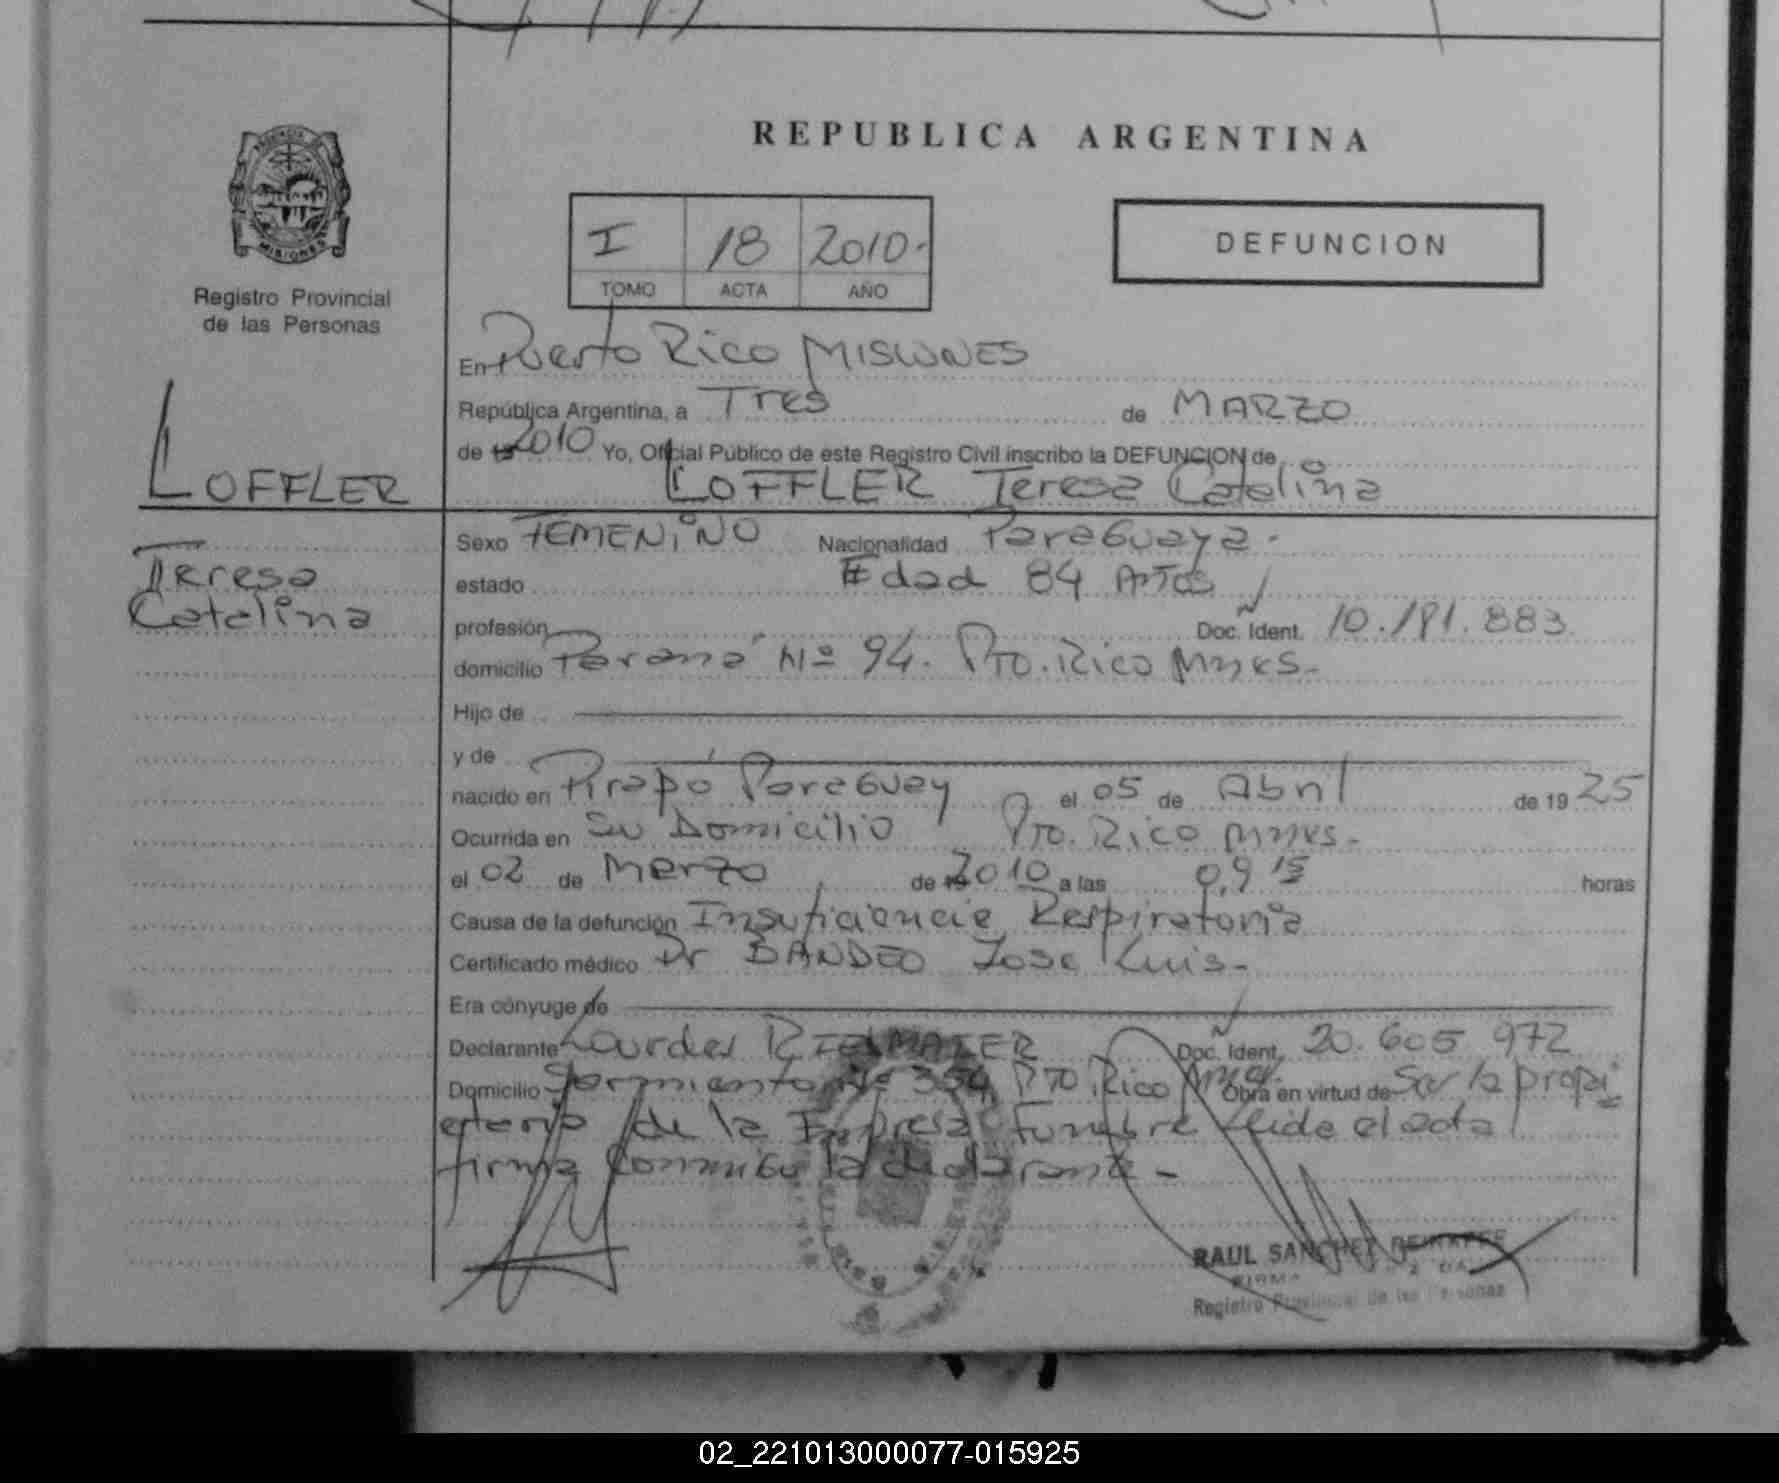 REPUBLICA ARGENTINA
I 18 2010.
TOMO ACTA AÑO
DEFUNCION
MISIONES
Registro Provincial
de las Personas
LOFFLER
Teresa
Catalina
En Puerto Rico MISIONES
República Argentina, a Tres de MARZO
de 19 2010 Yo, Oficial Público de este Registro Civil inscribo la DEFUNCION de
LOFFLER Teresa Catalina
Sexo FEMENINO Nacionalidad Paraguaya.
estado Edad 84 AÑOS
profesión Doc. Ident. 10.181.883
domicilio Paraná Nº 94. Pto. Rico Mnes.
Hijo de
y de
nacido en Pirapó Paraguay el 05 de Abril de 19 25
Ocurrida en Su Domicilio Pto. Rico Mnes.
el 02 de Marzo de 19 2010 a las 09 15 horas
Causa de la defunción Insuficiencia Respiratoria
Certificado médico Dr BANDEO Jose Luis.
Era cónyuge de
Declarante Lourdes Doc. Ident. 20.605 972
Domicilio Sarmiento Nº 354 Pto. Rico Mnes. Obra en virtud de Ser la propi
etaria de la Empresa Funebre leida el acta
firma conmigo la declarante -
RAUL SANCHEZ
Registro Provincial de las Personas
02_221013000077-015925